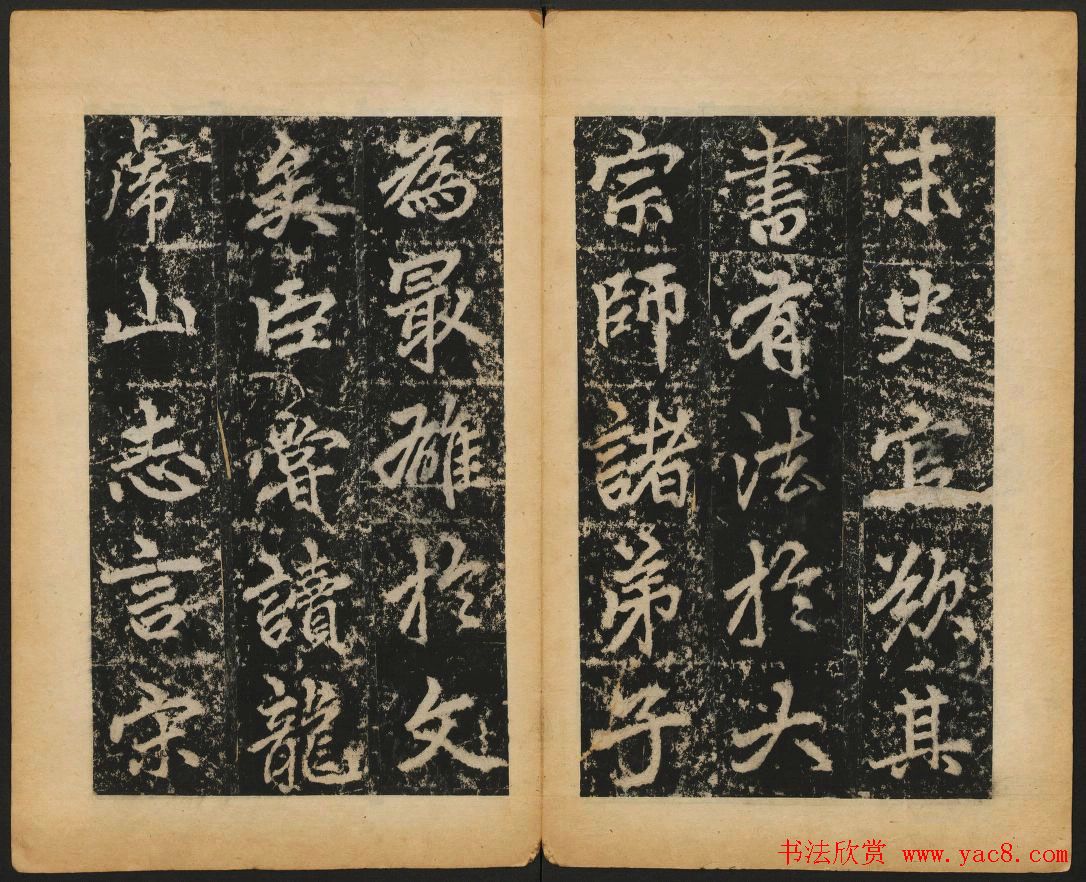 未史官欲其
書有法於大
宗師諸弟子
為最雄於文
矣臣嘗讀龍
虎山志言宋
书法欣赏 www.yac8.com